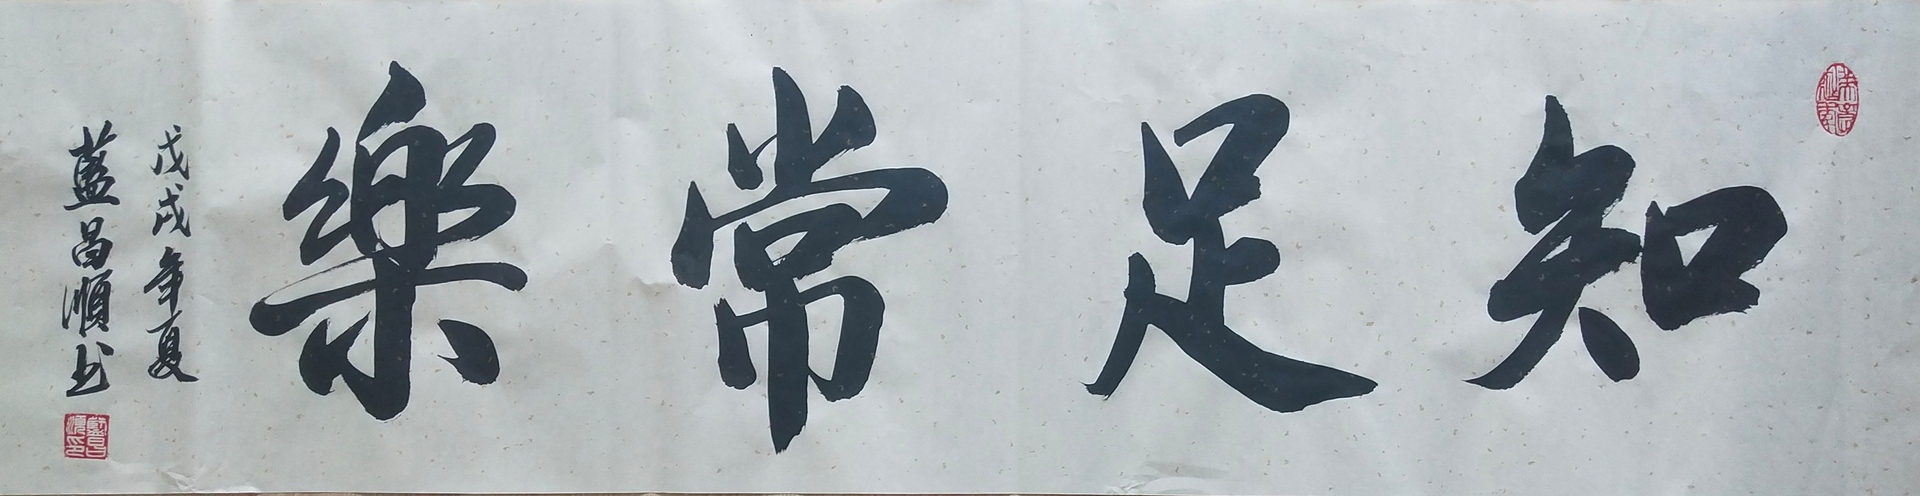 知足常樂
戊戌年夏
藍昌順书